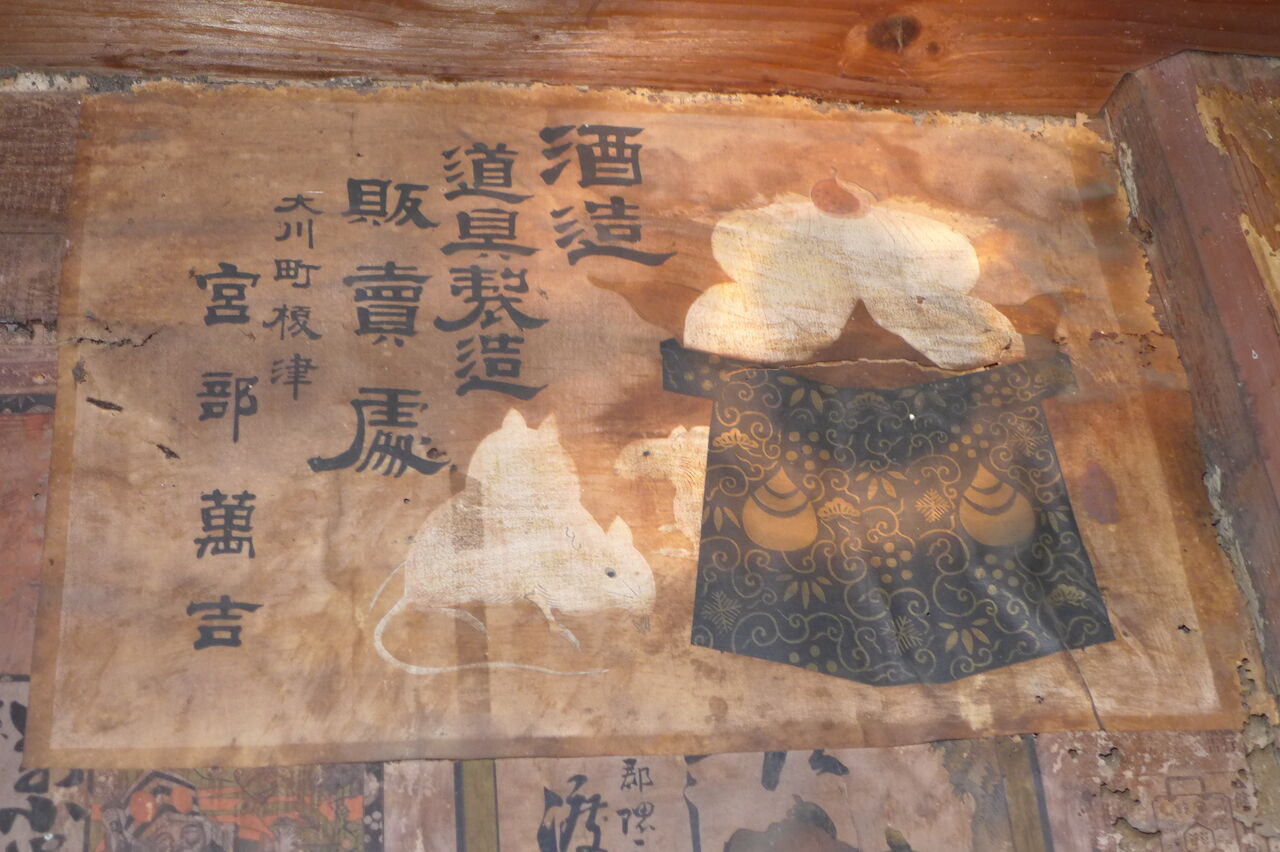 酒造
道具製造
販賣處
大川町榎津
宮部萬吉
郡
渡